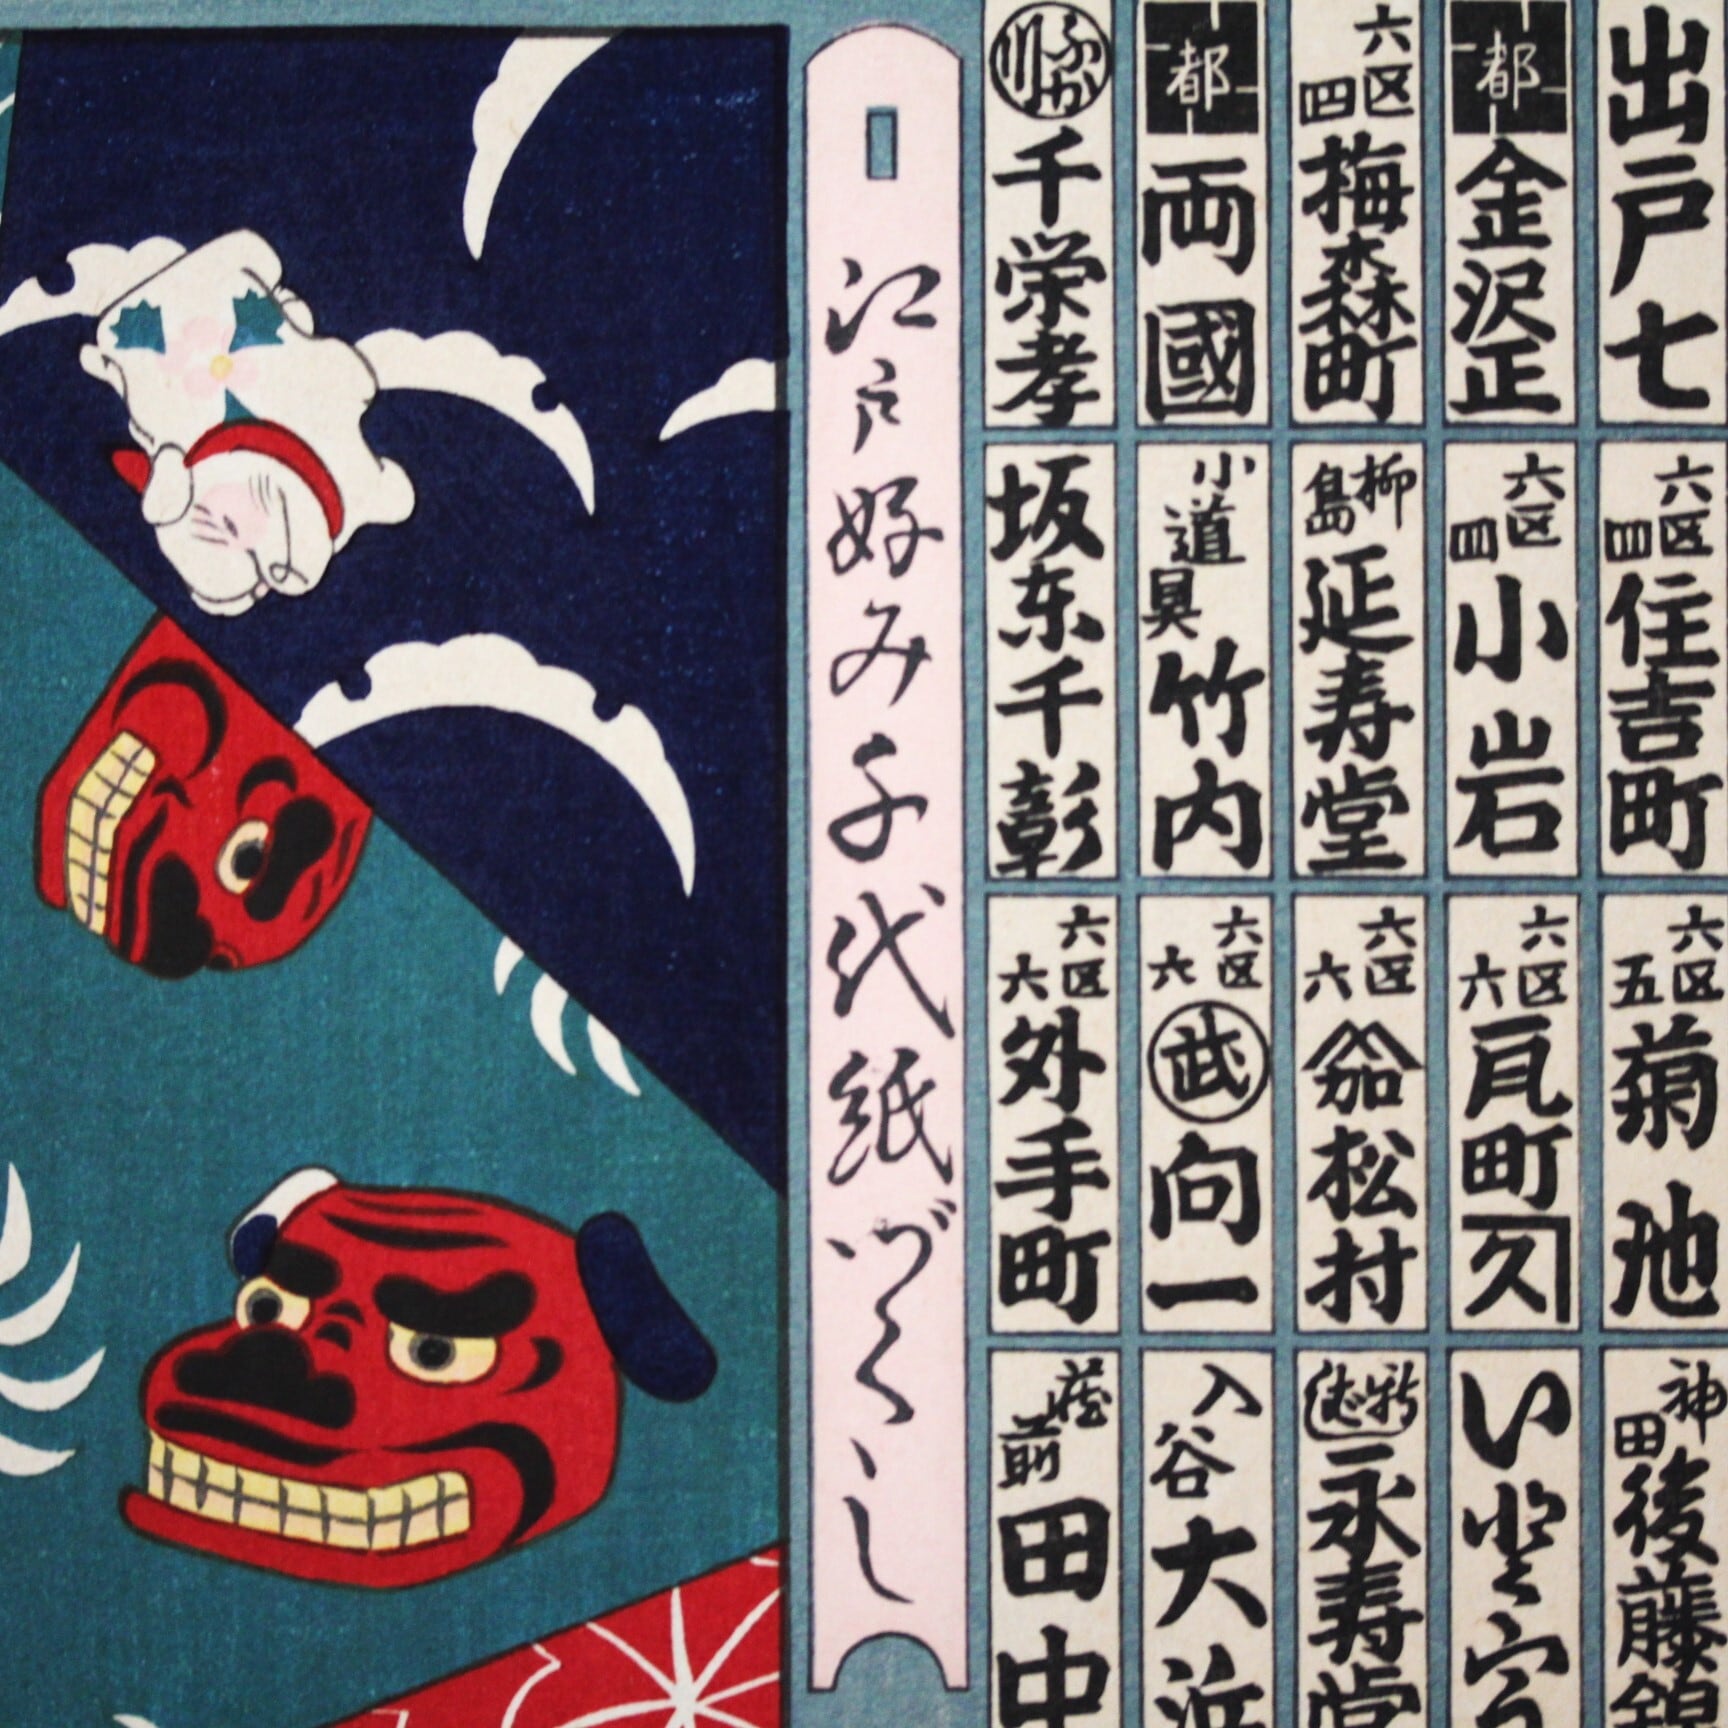 出戸七
都 金沢正
六区 四 梅森町
都 両國
ふか川 千栄孝
六区 四 住吉町
六区 四 小岩
柳島 延寿堂
小道具 竹内
坂东千彰
六区 五 菊池
六区 六 瓦町 久
六区 六 加 松村
六区 六 武 向一
六区 六 外手町
神田 後藤錦
三永寿堂
入谷 大浜
蔵前 田中
江戸好み千代紙づくし